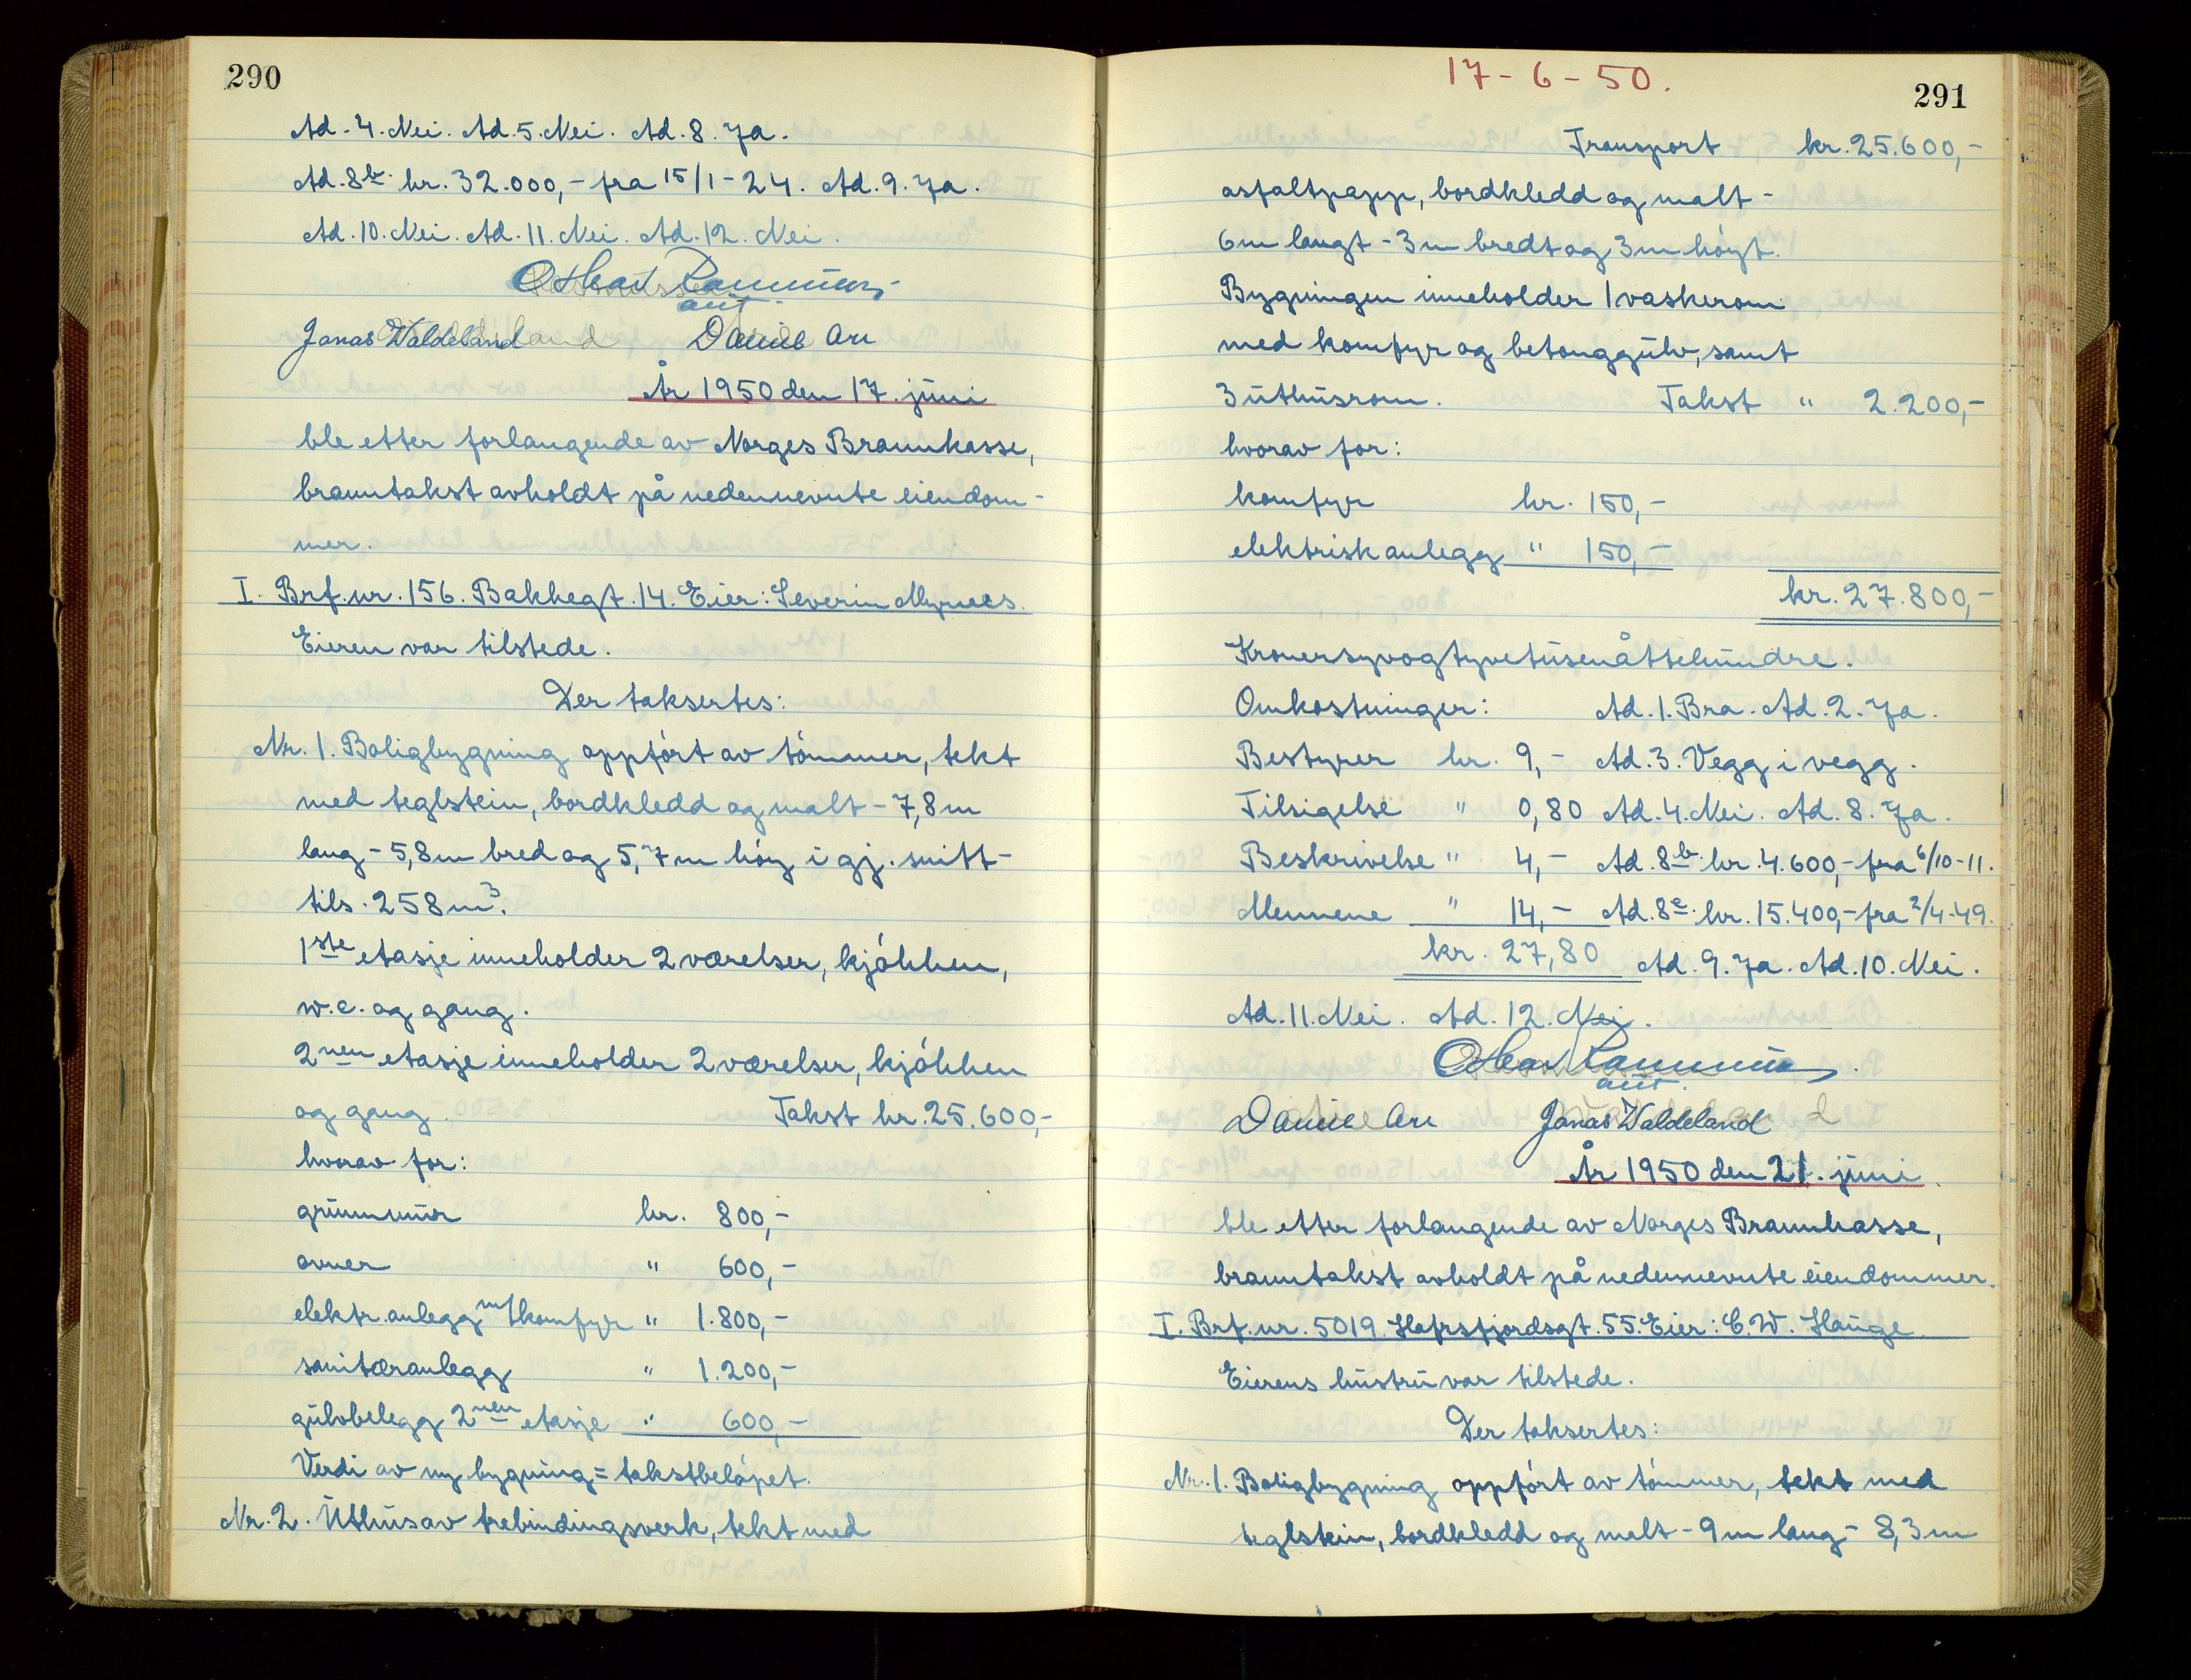 290
Ad. 4. Nei. Ad. 5. Nei. Ad. 8. Ja.
Ad. 8b. kr. 32.000,- fra 15/1-24. Ad. 9. Ja.
Ad. 10. Nei. Ad. 11. Nei. Ad. 12. Nei.
aut
Jonas Waldeland Daniel
År 1950 den 17. juni
ble etter forlangende av Norges Brannkasse,
branntakst avholdt på nedennevnte eiendom-
mer.
I. Brf. nr. 156. Bakkegt. 14. Eier: Severin Myrnes.
Eieren var tilstede.
Der taksertes:
Nr. 1. Boligbygning oppført av tømmer, tekt
med teglstein, bordkledd og malt - 7,8 m
lang - 5,8 m bred og 5,7 m høy i gj. snitt -
tils. 258 m3.
1ste etasje inneholder 2 værelser, kjøkken,
w.c. og gang.
2nen etasje inneholder 2 værelser, kjøkken
og gang. Takst kr. 25.600,-
hvorav for:
grunnmur kr. 800,-
ovner " 600,-
elektr. anlegg m/komfyr " 1.800,-
sanitæranlegg " 1.200,-
gulvbelegg 2nen etasje " 600,-
Verdi av ny bygning = takstbeløpet.
Nr. 2. Uthus av trebindingsverk, tekt med
17-6-50.
291
Transport kr. 25.600,-
asfaltpapp, bordkledd og malt -
6 m langt - 3 m bredt og 3 m høyt.
Bygningen inneholder 1 vaskerom
med komfyr og betonggulv, samt
3 uthusrom. Takst " 2.200,-
hvorav for:
komfyr kr. 150,-
elektrisk anlegg " 150,-
kr. 27.800,-
Kronersyvogtyvetusenåttehundre.
Omkostninger: Ad. 1. Bra. Ad. 2. Ja.
Bestyrer kr. 9,- Ad. 3. Vegg i vegg.
Tilsigelse " 0,80 Ad. 4. Nei. Ad. 8. Ja.
Beskrivelse " 4,- Ad. 8b. kr. 4.600,- fra 6/10-11.
Mennene " 14,- Ad. 8c. kr. 15.400,- fra 2/4-49.
kr. 27,80 Ad. 9. Ja. Ad. 10. Nei.
Ad. 11. Nei. Ad. 12. Nei.
aut.
Daniel Jonas Waldeland
År 1950 den 21. juni
ble etter forlangende av Norges Brannkasse,
branntakst avholdt på nedennevnte eiendommer.
I. Brf. nr. 5019. Hafrsfjordsgt. 55. Eier: C. W. Hauge
Eierens hustru var tilstede.
Der taksertes:
Nr. 1. Boligbygning oppført av tømmer, tekt med
teglstein, bordkledd og malt - 9 m lang - 8,3 m